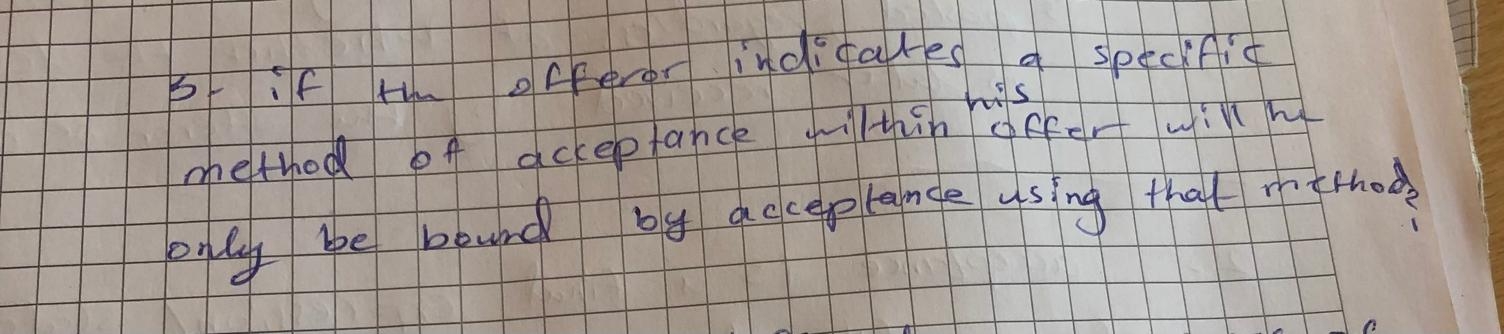 5- if the offeror indicates a specific
method of acceptance within his offer will he
only be bound by acceptance using that method?